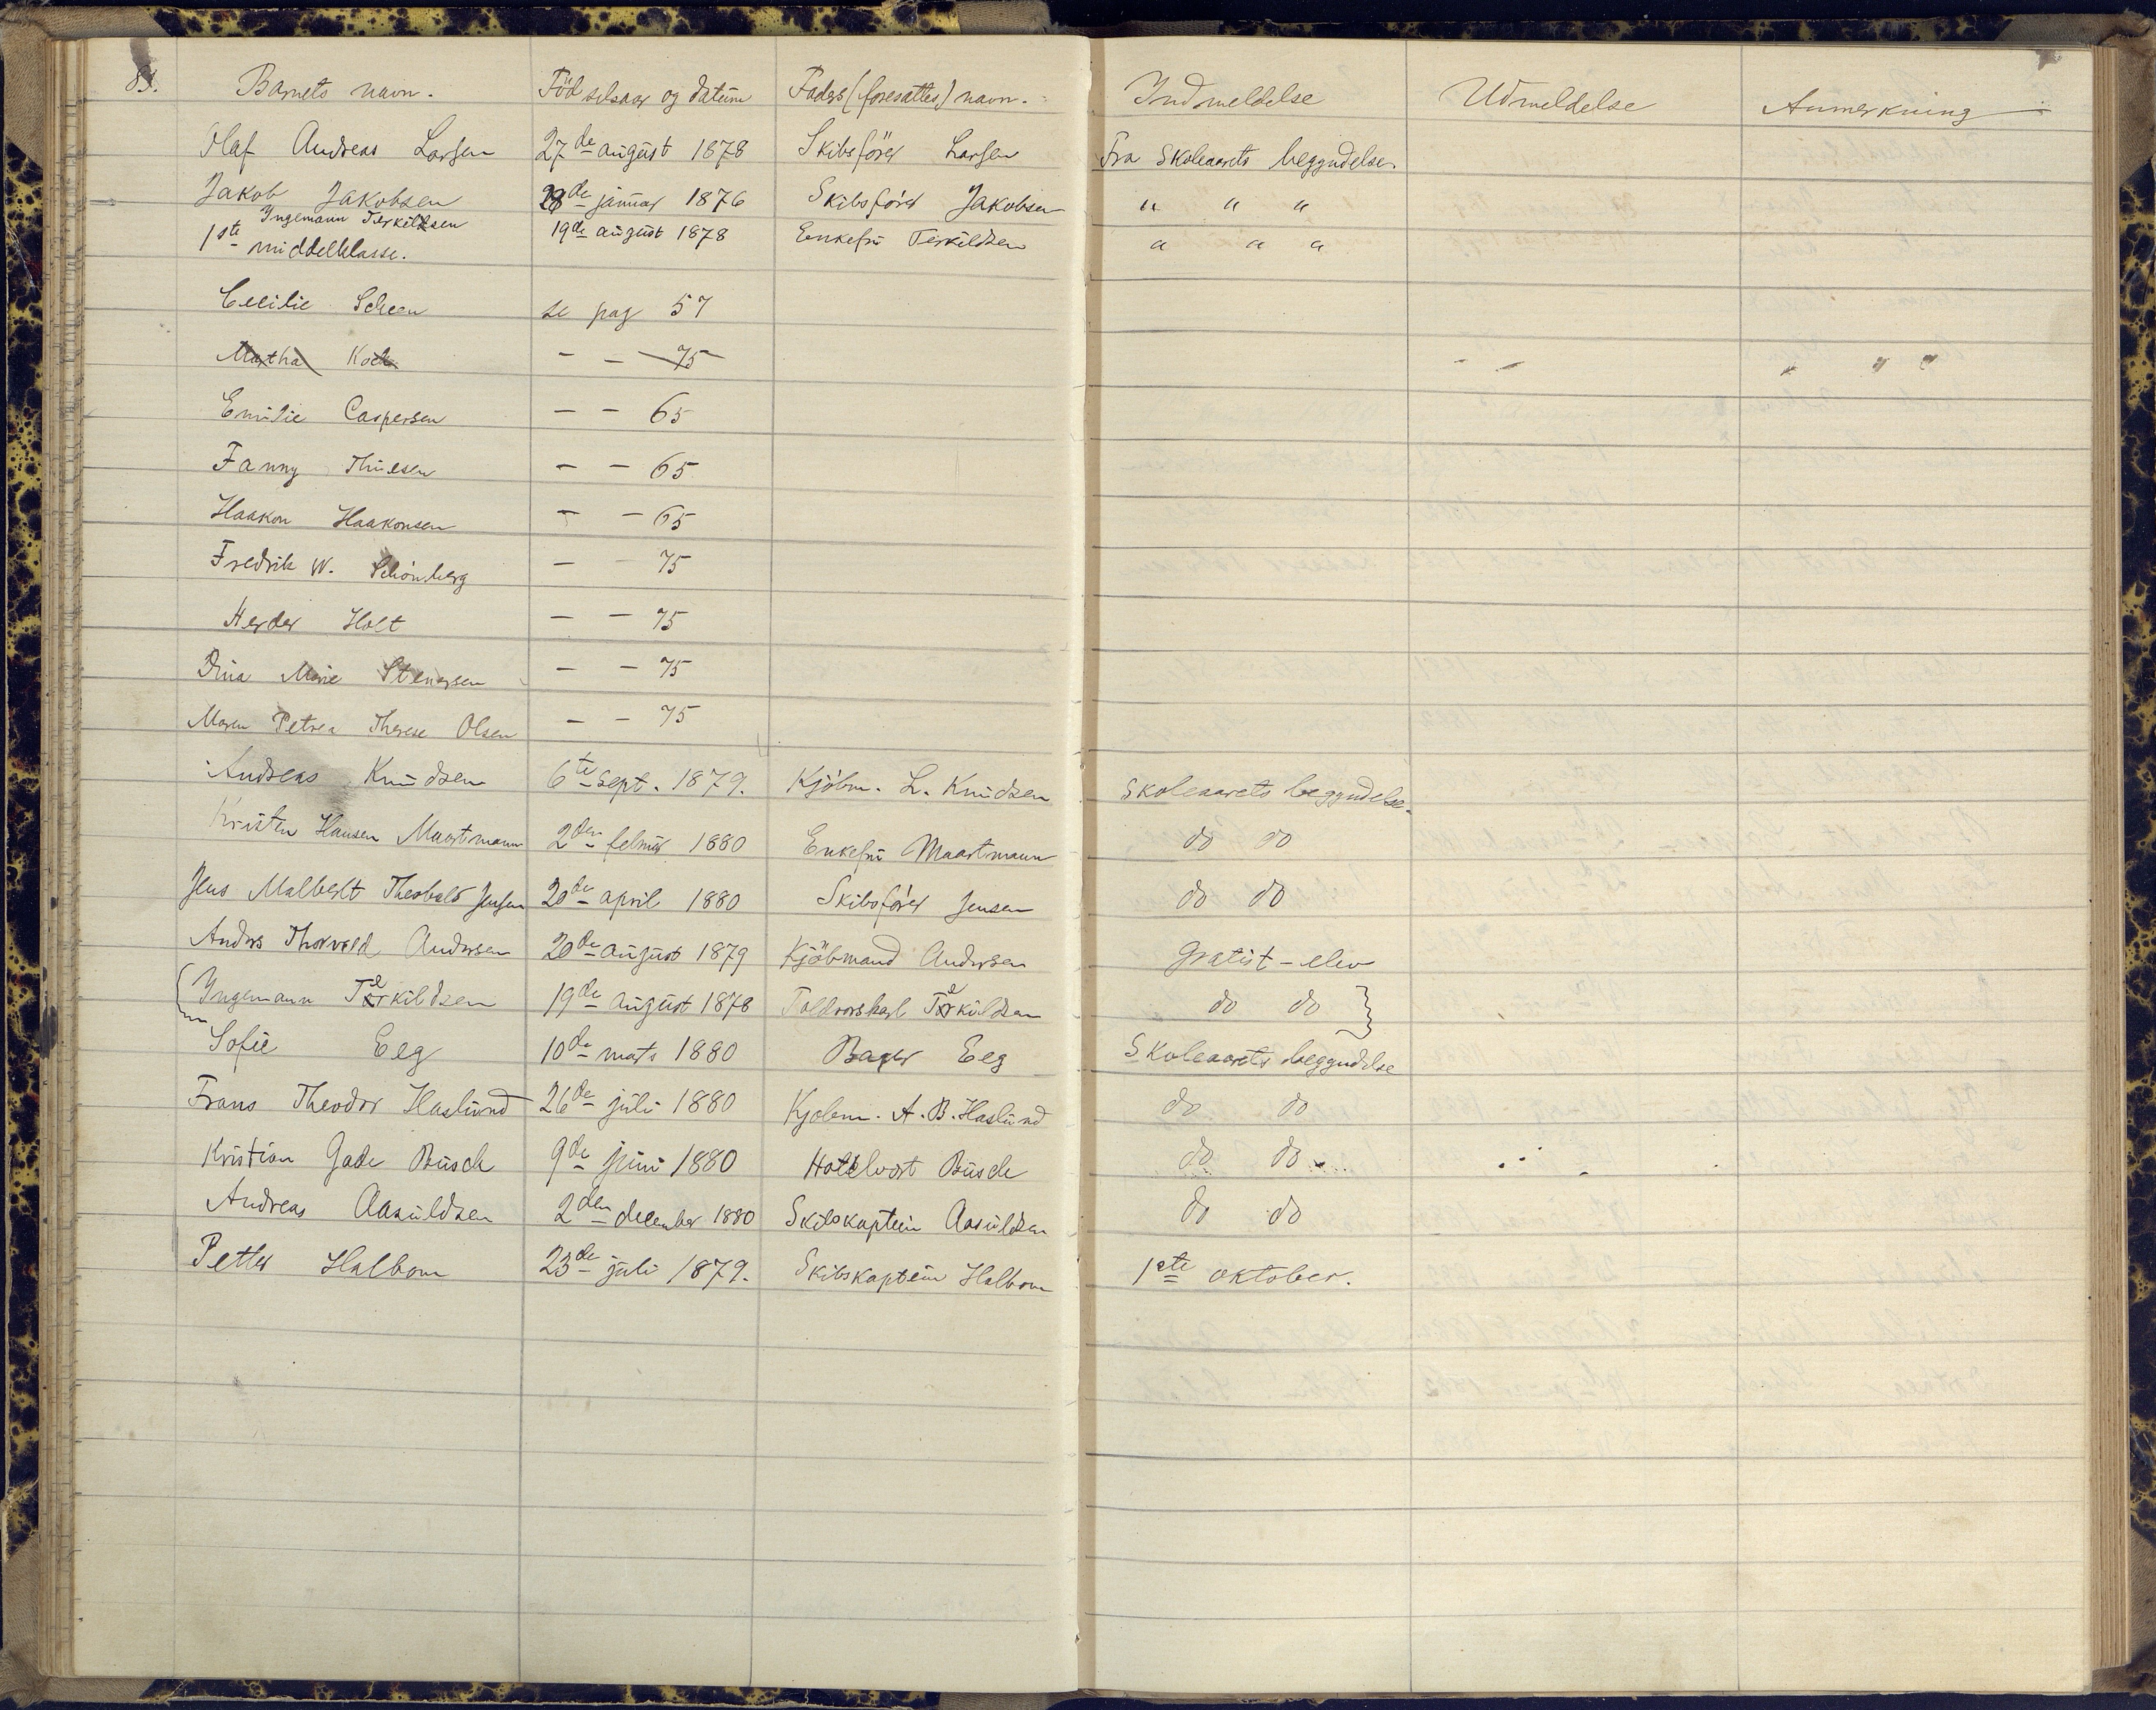 83. Barnets navn. Födselsaar og datum Faders (foresattes) navn. Indmeldelse Udmeldelse Anmerkning
Olaf Andreas Larsen 27de august 1878 Skibsförer Larsen Fra Skoleaarets begyndelse.
Jakob Jakobsen 28de januar 1876 Skibsförer Jakobsen " " "
Ingemann Terkildsen 19de august 1878 Enkefru Terkildsen " " "
1ste middelklasse.
Cecilie Scheen se pag 57
Martha Koch - - 75
Emilie Caspersen - - 65
Fanny Thiesen - - 65
Haakon Haakonsen - - 65
Fredrik W. Schönberg - - 75
Herder Holt - - 75
Dina Marie Stenersen - - 75
Maren Petrea Therese Olsen - - 75
Andreas Knudsen 6te sept. 1879. Kjöbm. L. Knudsen Skoleaarets begyndelse.
Kristen Hansen Maartmann 2den februar 1880 Enkefru Maartmann do do
Jens Malbert Theobald Jensen 20de april 1880 Skibsförer Jensen do do
Anders Thorvald Andersen 20de august 1879 Kjöbmand Andersen Gratist-elev
Ingemann Terkildsen 19de august 1878 Toldrorskarl Terkildsen do do
Sofie Eeg 10de mats 1880 Bager Eeg Skoleaarets begyndelse
Frans Theodor Haslund 26de juli 1880 Kjøbm. A. B. Haslund do do
Kristian Gade Busch 9de juni 1880 Hotelvært Busch do do
Andreas Aasuldsen 2den december 1880 Skibskaptein Aasuldsen do do
Petter Halbom 23de juli 1879. Skibskaptein Halbom 1ste oktober.